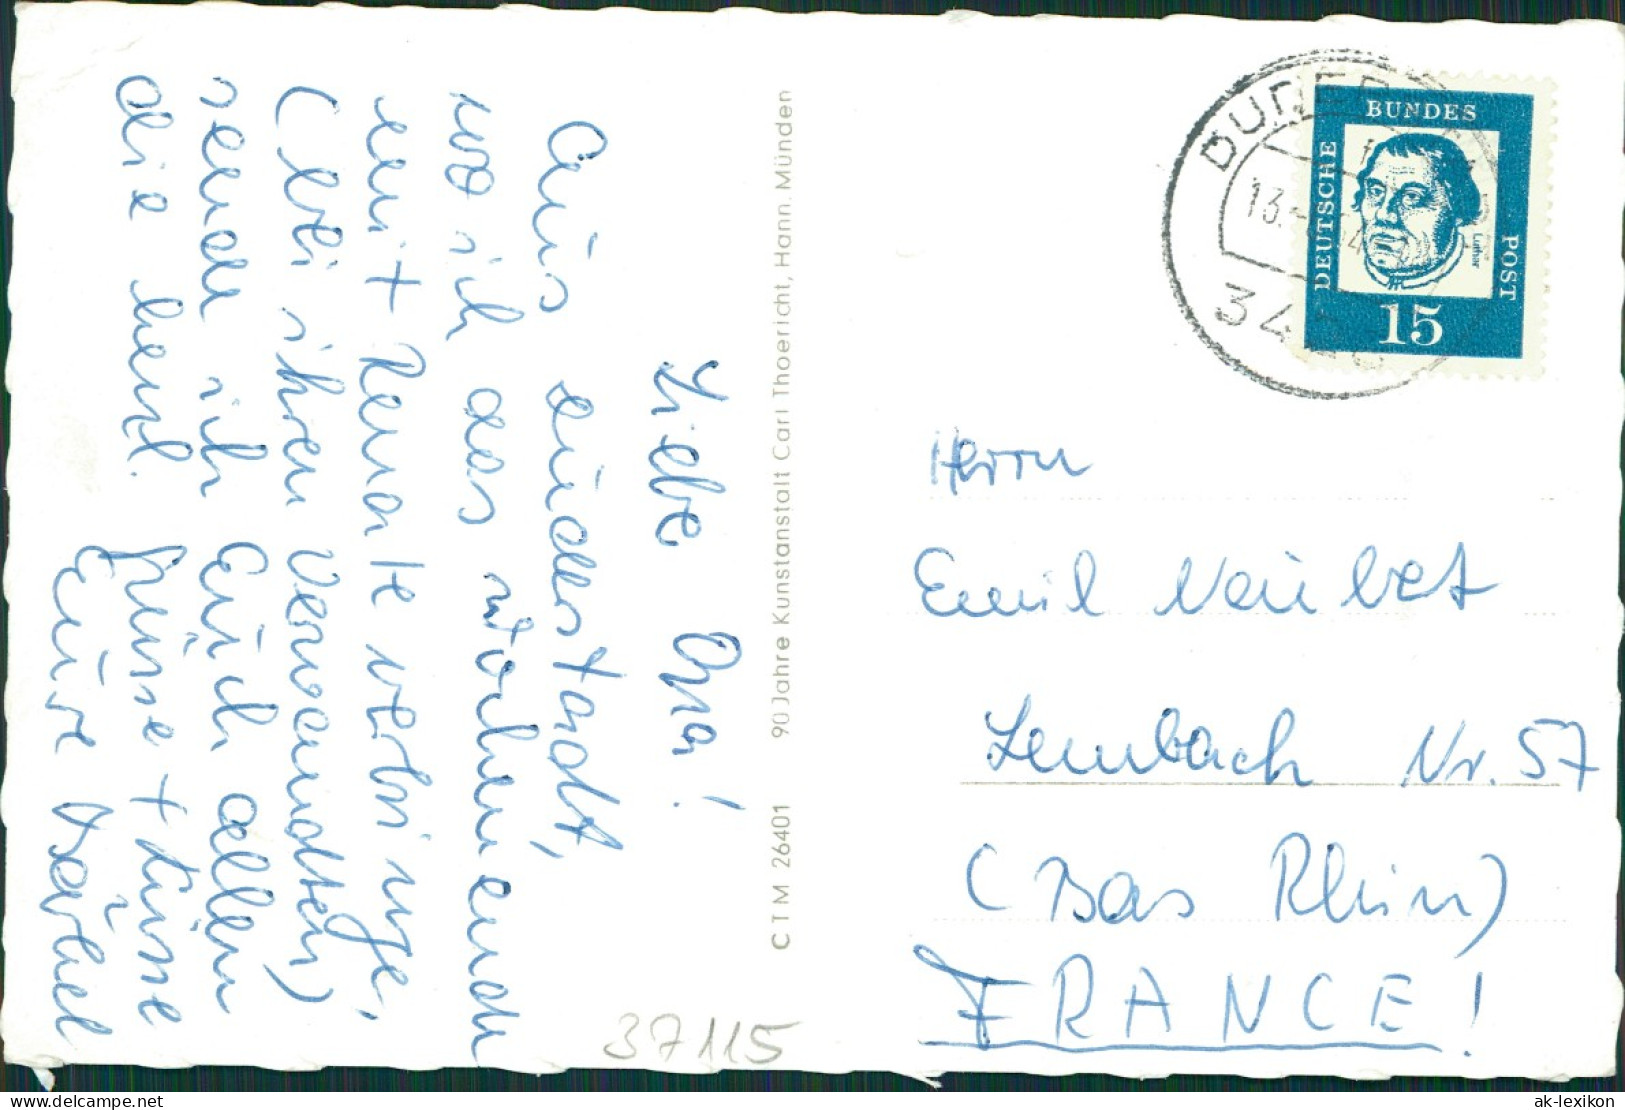 Liebe Oma!
Aus Duderstadt,
wo ich das Wochenende
mit Renate verbringe,
(bei ihren Verwandten)
sende ich Euch allen
die herzl. Grüsse + Küsse
Eure Bärbel
90 Jahre Kunstanstalt Carl Thoericht, Hann. Münden
C T M 26401
37115
DUDER
13.
34
DEUTSCHE
BUNDES
POST
Luther
15
Herrn
Emil Neubert
Lembach Nr. 57
(Bas Rhin)
FRANCE!
delcampe.net
ak-lexikon